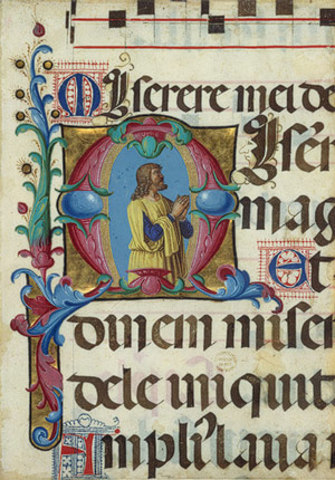 Miserere mei de
Miser
mag
Et
dinem miser
dele iniquit
Ampliꝰ laua